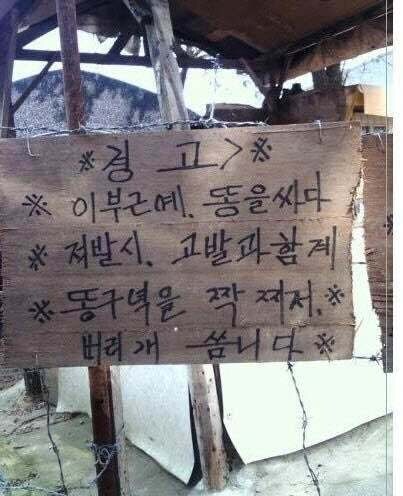 ※경 고>※
※ 이부근에. 똥을싸다
※ 저발시. 고발과함게
※똥구넉을 짝 찌저.※
버리개 씀니다※